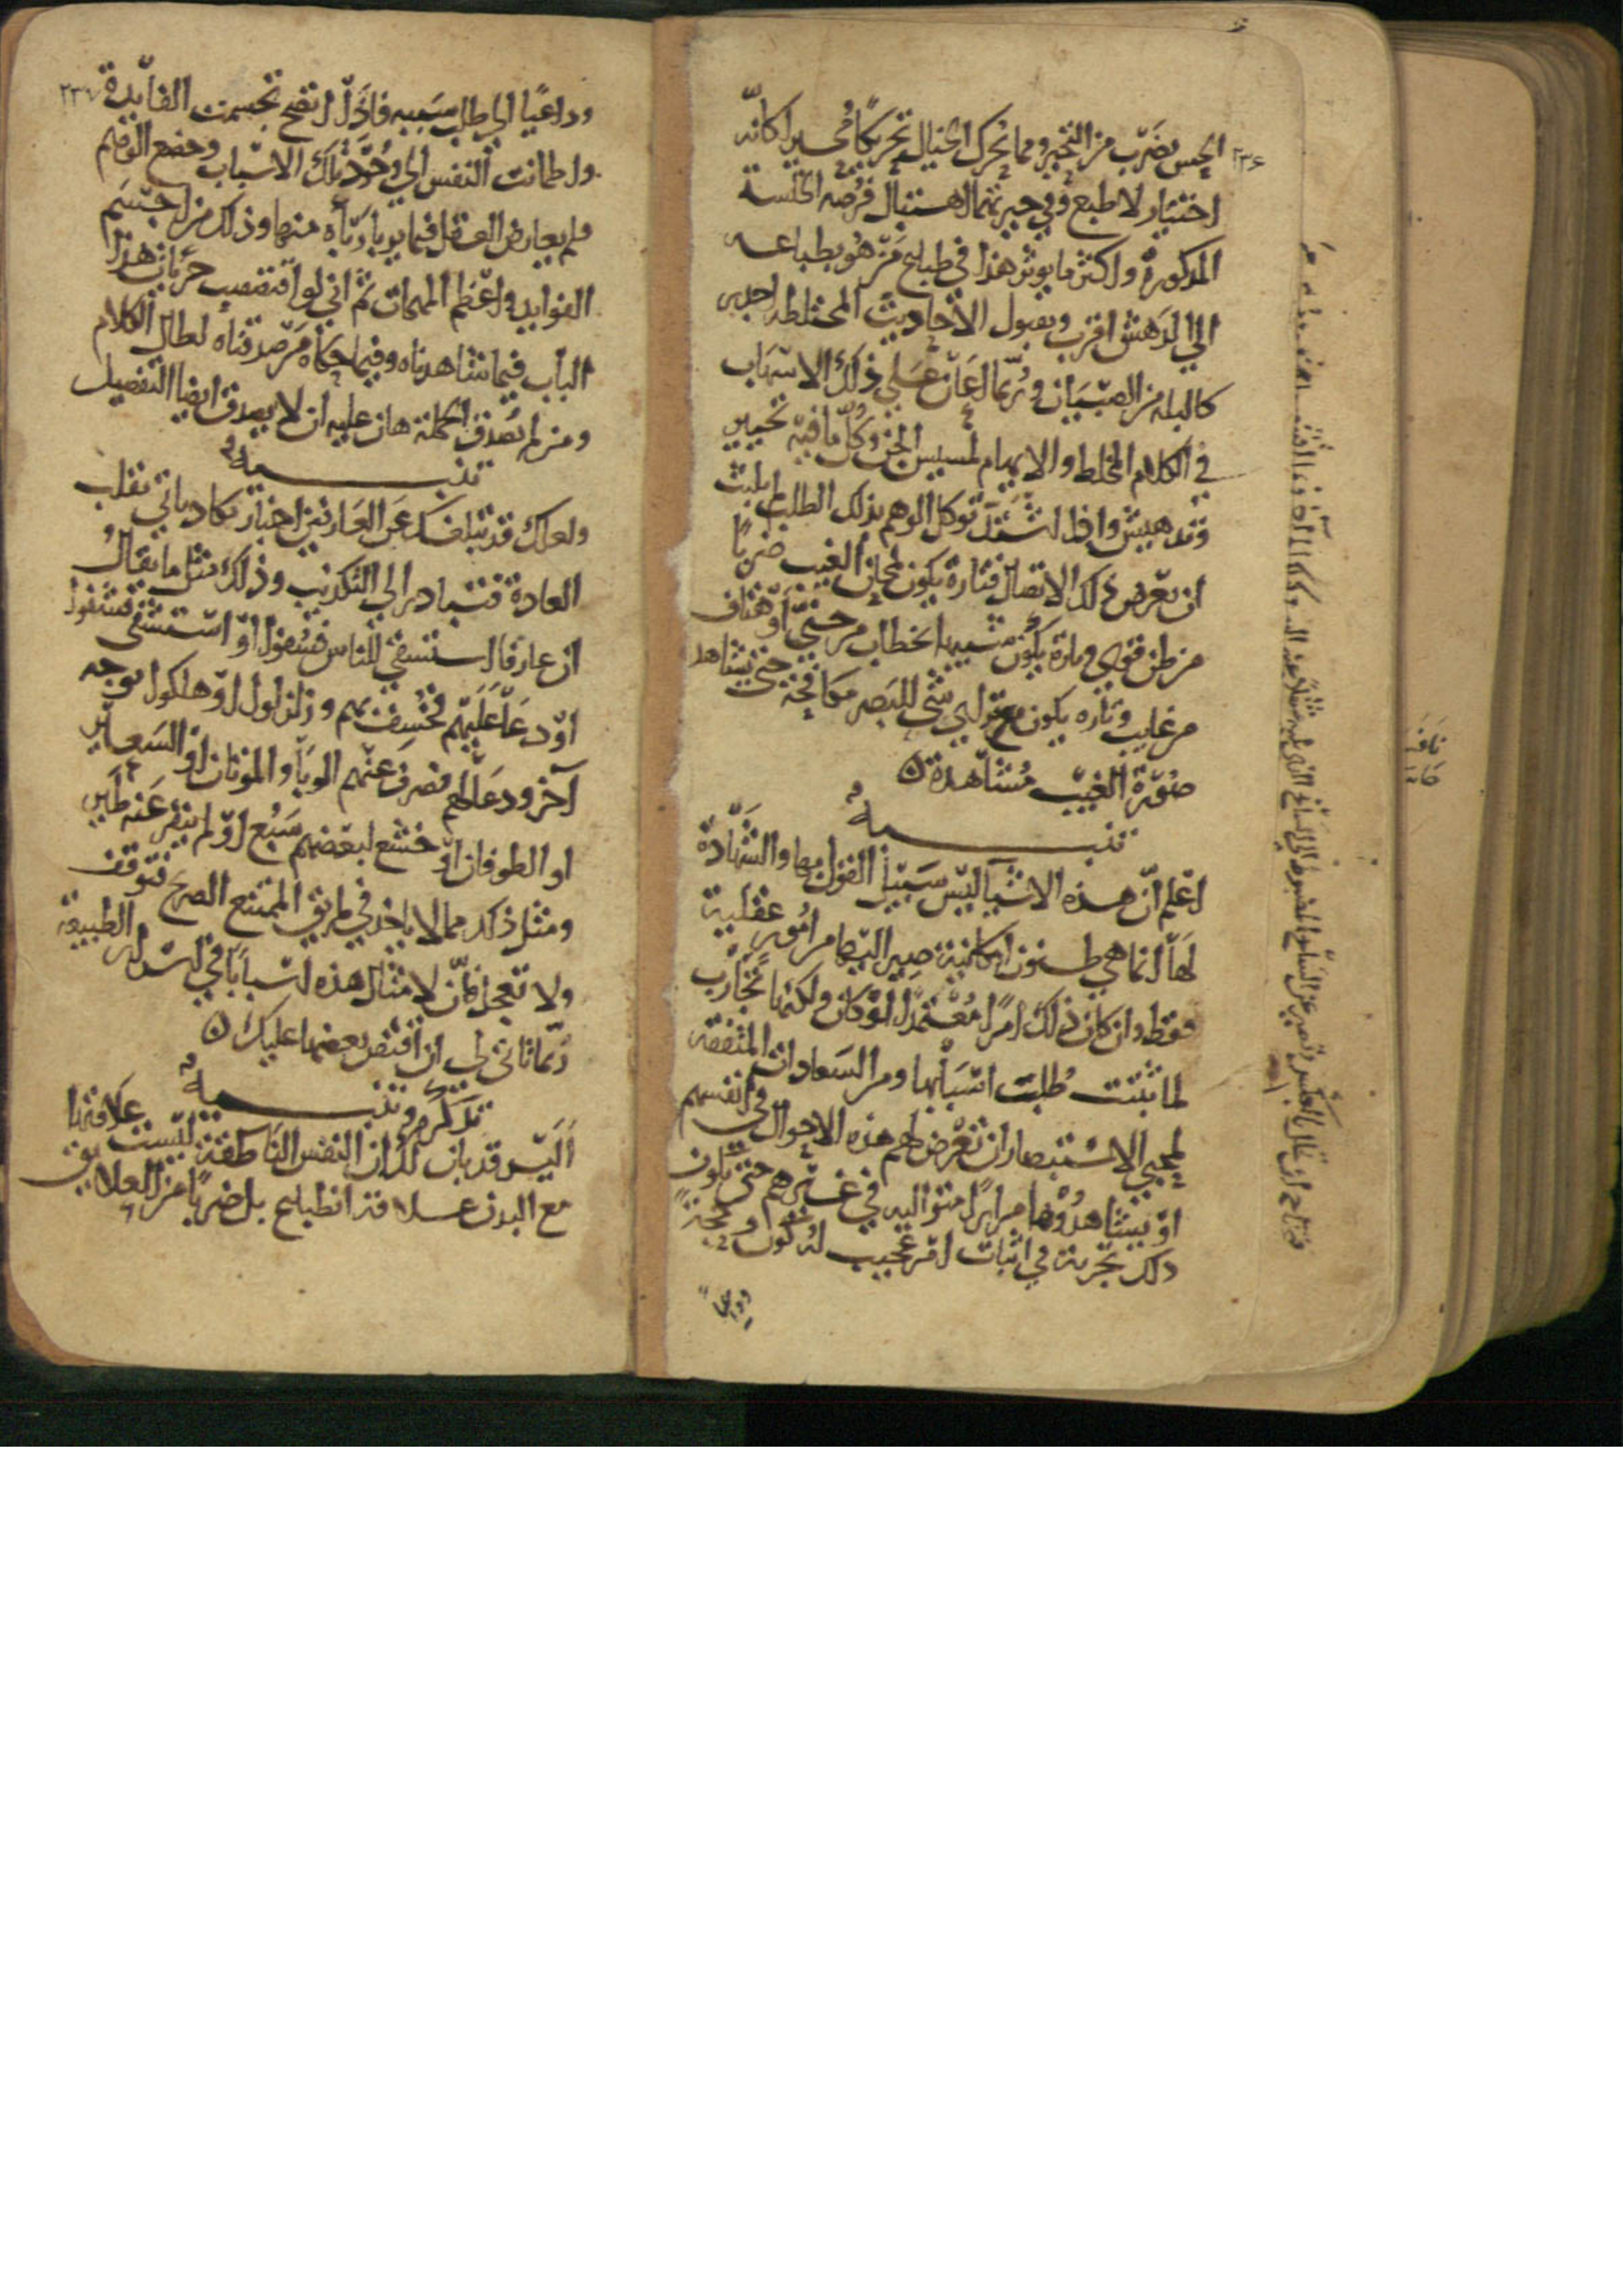 ٢٣٦
الحس بضرب من التحير ومما يحرك الخيال تحريكًا محيرا كانّه
اختيار لا طبع وفي حيرتهما اهتبال فرصة الخلسة
المذكورة واكثر ما يوثر هذا في طباع من هو بطباعه
الي الدهش اقرب وبقبول الاحاديث المختلطه اجدر
كالبله من الصبيان وربما اعان علي ذلك الاسهاب
في الكلام المختلط والايهام لمسيس الجن وكل ما فيه تحيير
وتدهيش واذا اشتد توكل الوهم بذلك الطلب لم يلبث
ان يعرض ذلك الاتصال فتارة يكون لمحان الغيب ضربًا
من ظن قوي وتارة يكون شبيها بخطاب من جني او هتاف
من غايب وتاره يكون مع تراي شي للبصر مكافحة حتي تشاهد
صورة الغيب مشاهدة
تنبيه
اعلم انّ هذه الاشيا ليس سبيل القول بها والشهادة
لها انما هي ظنون امكانية صير اليها من امور عقلية
فقط وان كان ذلك امرًا معتمدا لو كان ولكنها تجارب
لما ثبتت طلبت اسبابها ومن السعادات المتفقة
لمحبي الاستبصار ان تعرض لهم هذه الاحوال في انفسهم
او يشاهدوها مرارًا متواليه في غيرهم حتي يكون
ذلك تجربة في اثبات امر عجيب له كون وحجةً
وداعيا
٢٣٧
وداعيًا الي طلب سببه فاذا اتضح تجسمت الفايدة
واطمانت النفس الي وجود تلك الاسباب وخضع الوهم
ولم يعارض العقل فيما يربا رباه منها وذلك من اجسم
الفوايد واعظم المهمات ثم اني لو اقتصيت جزئيات هذا
الباب فيما شاهدناه وفيما حكاه من صدقناه لطال الكلام
ومن لم يصدق الجملة هان عليه ان لا يصدق ايضا التفصيل
تنبيه
ولعلك قد تبلغك عن العارفين اخبار تكاد تاتي تقلب
العادة فتبادر الي التكذيب وذلك مثل ما يقال
ان عارفا استسقي للناس فسقوا او استشفي فشفوا
او دعا عليهم فخسف بهم وزلزلوا او هلكوا بوجه
آخر ودعا لهم فصرف عنهم الوبا والموتان او السعاير
او الطوفان او خشع لبعضهم سبع او لم ينفر عنه طاير
ومثل ذلك مما لا ياخذ في طريق الممتنع الصريح فتوقف
ولا تعجل فانّ لامثال هذه اسبابًا في اسرار الطبيعة
ربما تاتي لي ان اقتص بعضها عليك
تذكرة وتنبيه
أليس قد بان لك ان النفس الناطقة ليست علاقتها
مع البدن علاقة انطباع بل ضربًا من العلايق